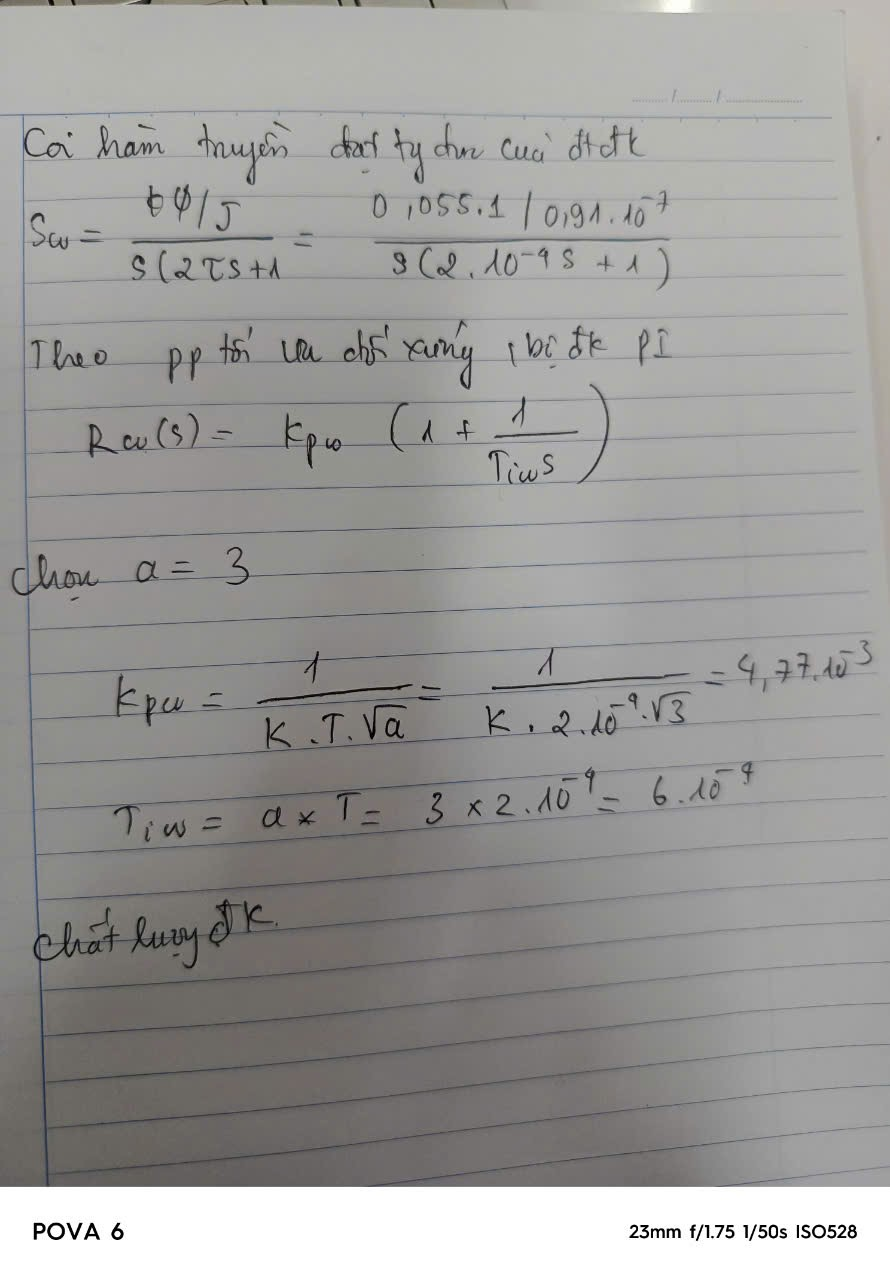 Coi hàm truyền đạt tự do của đtđk
Sω = tφ/J / s(2τs+1 = 0,055.1 / 0,91.10⁻⁷ / s(2.10⁻⁴s + 1)
Theo pp tối ưu đối xứng, bị đk PI
Rω(s) = Kpω (1 + 1 / Tiωs)
Chọn a = 3
Kpω = 1 / K.T.√a = 1 / K.2.10⁻⁴.√3 = 4,77.10⁻³
Tiω = a × T = 3 × 2.10⁻⁴ = 6.10⁻⁴
Chất lượng đk.
POVA 6
23mm f/1.75 1/50s ISO528